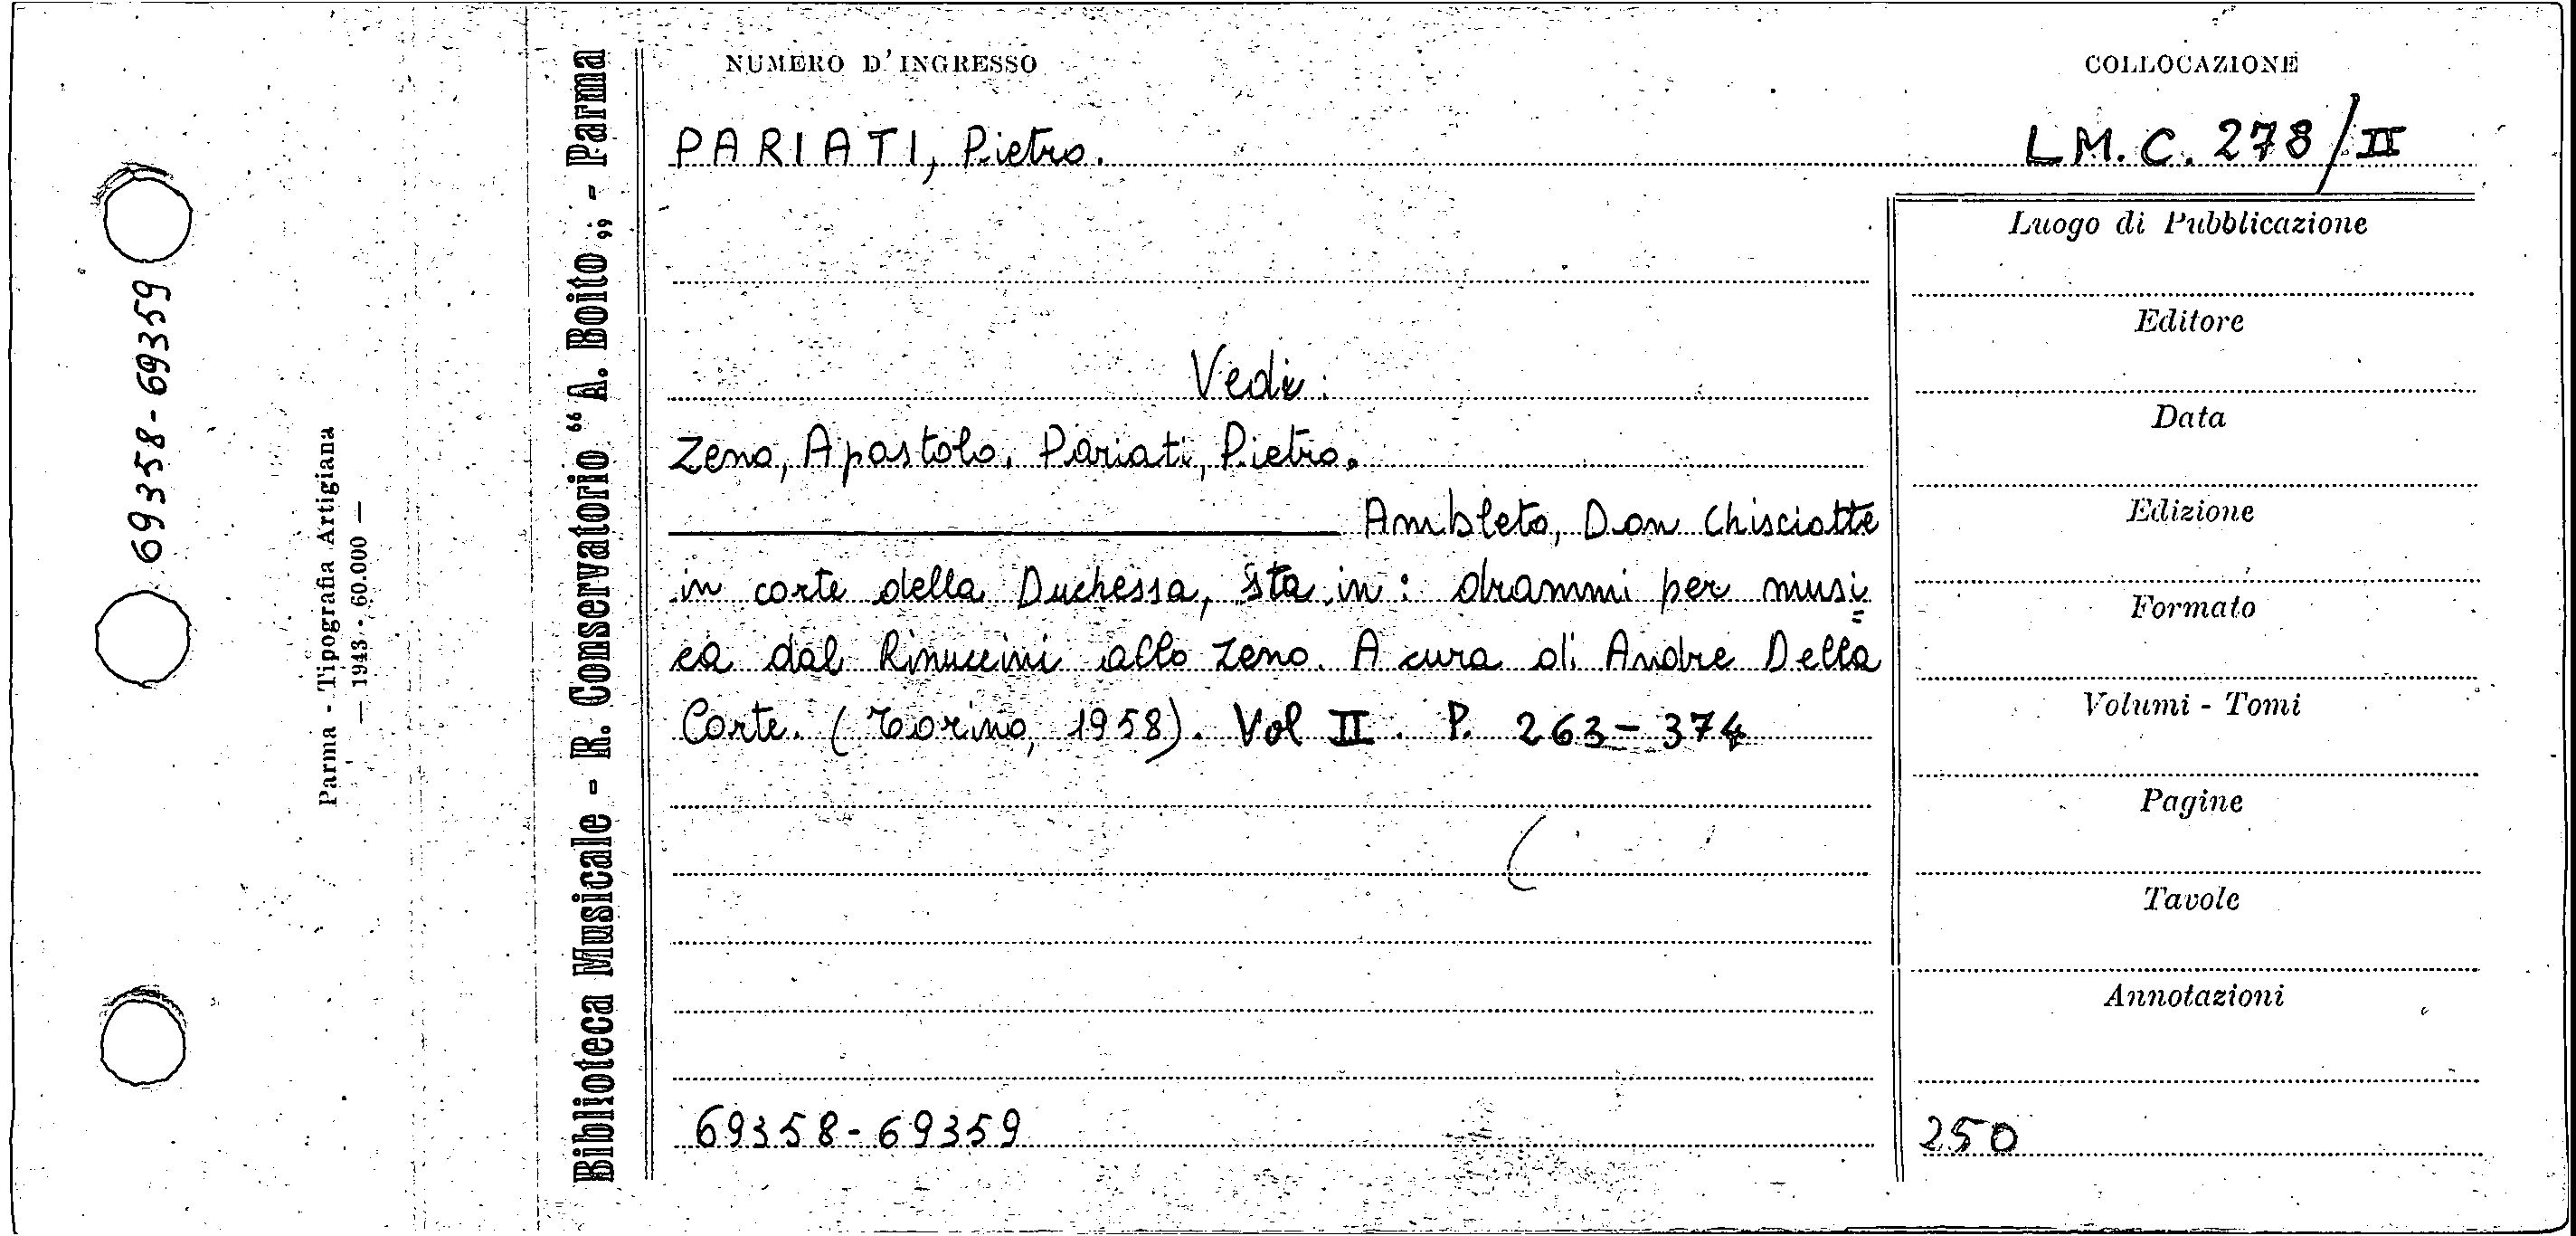 69358-69359
Parma - Tipografia Artigiana
— 1943 - 60.000 —
Biblioteca Musicale - R. Conservatorio “A. Boito„ - Parma
NUMERO D'INGRESSO
COLLOCAZIONE
PARIATI, Pietro.
L.M.C. 278/II
Vedi:
Zeno, Apostolo. Pariati, Pietro.
Ambleto, Don Chisciotte
in corte della Duchessa, sta in: drammi per musi=
ca dal Rinuccini allo Zeno. A cura di Andre Della
Corte. (Torino, 1958). Vol II. P. 263-374
69358-69359
Luogo di Pubblicazione
Editore
Data
Edizione
Formato
Volumi - Tomi
Pagine
Tavole
Annotazioni
250